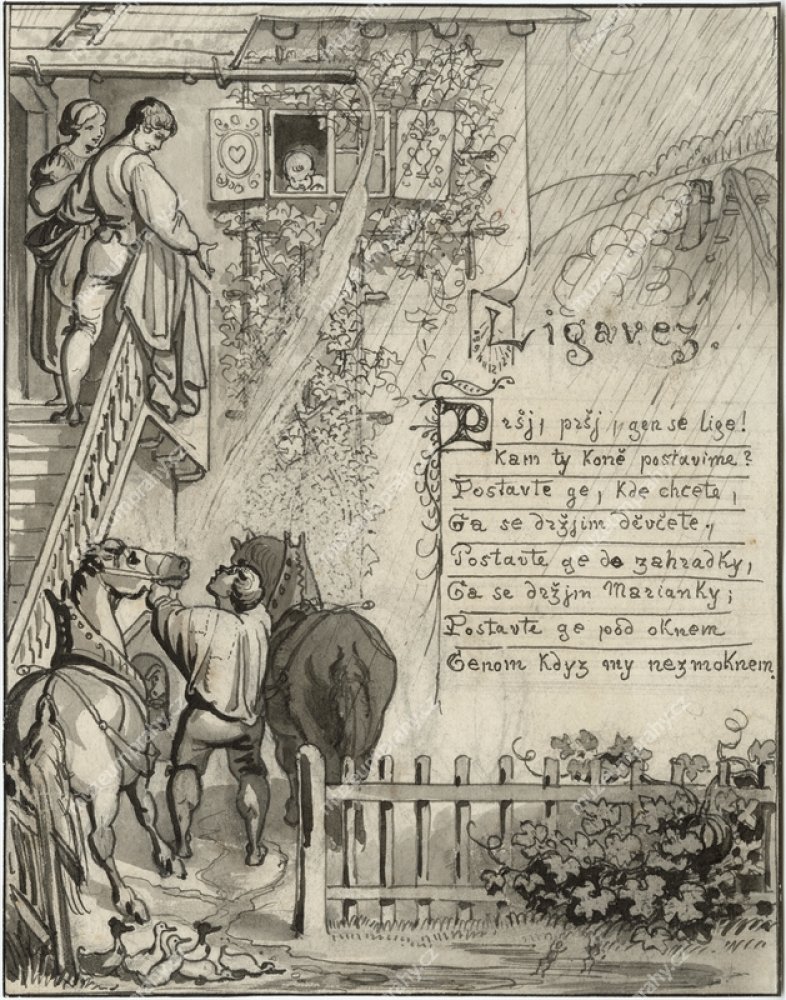 Ližavez.
Pršj, pršj, gen se lige!
Kam ty koně postavime?
Postavte ge, kde chcete,
Ga se držjim děvčete.,
Postavte ge do zahradky,
Ga se držjm Marianky;
Postavte ge pod oknem
Genom kdyz my nezmoknem.